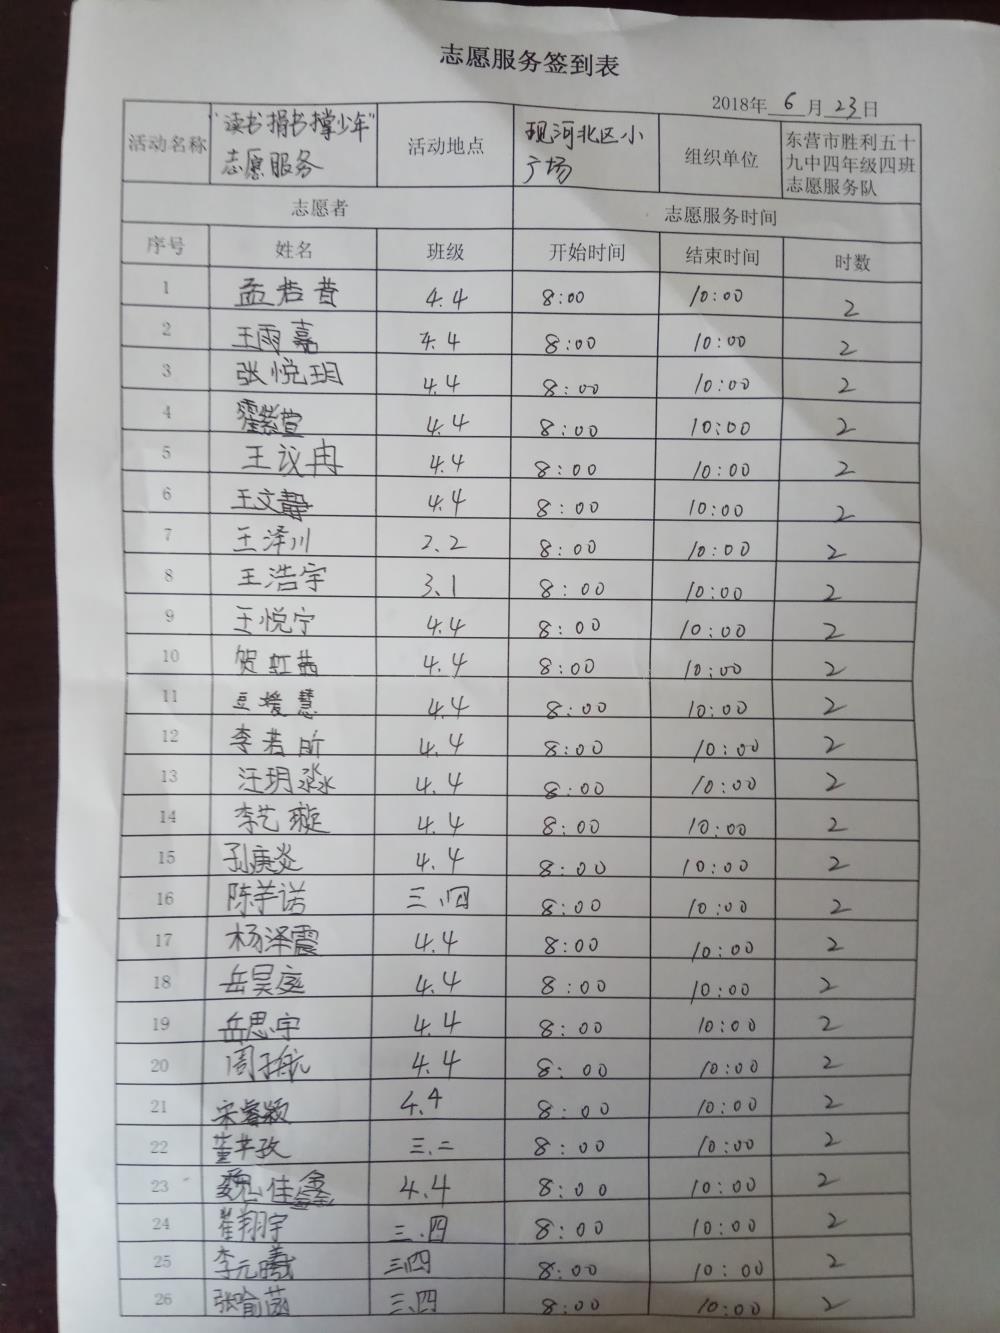 志愿服务签到表
2018年 6 月 23 日
活动名称 "读书捐书撑少年" 志愿服务 活动地点 现河北区小广场 组织单位 东营市胜利五十九中四年级四班志愿服务队
志愿者 志愿服务时间
序号 姓名 班级 开始时间 结束时间 时数
1 孟若昔 4.4 8:00 10:00 2
2 王雨嘉 4.4 8:00 10:00 2
3 张悦玥 4.4 8:00 10:00 2
4 霍紫萱 4.4 8:00 10:00 2
5 王议冉 4.4 8:00 10:00 2
6 王文静 4.4 8:00 10:00 2
7 王泽川 2.2 8:00 10:00 2
8 王浩宇 3.1 8:00 10:00 2
9 王悦宁 4.4 8:00 10:00 2
10 贺虹茜 4.4 8:00 10:00 2
11 豆媛慧 4.4 8:00 10:00 2
12 李若昕 4.4 8:00 10:00 2
13 汪玥淼 4.4 8:00 10:00 2
14 李艺璇 4.4 8:00 10:00 2
15 孙庚炎 4.4 8:00 10:00 2
16 陈芊诺 三.四 8:00 10:00 2
17 杨泽震 4.4 8:00 10:00 2
18 岳昊庭 4.4 8:00 10:00 2
19 岳思宇 4.4 8:00 10:00 2
20 周于航 4.4 8:00 10:00 2
21 宋睿颖 4.4 8:00 10:00 2
22 董芊孜 三.二 8:00 10:00 2
23 魏佳鑫 4.4 8:00 10:00 2
24 翟翔宇 三.四 8:00 10:00 2
25 李元曦 三.四 8:00 10:00 2
26 张喻菡 三.四 8:00 10:00 2